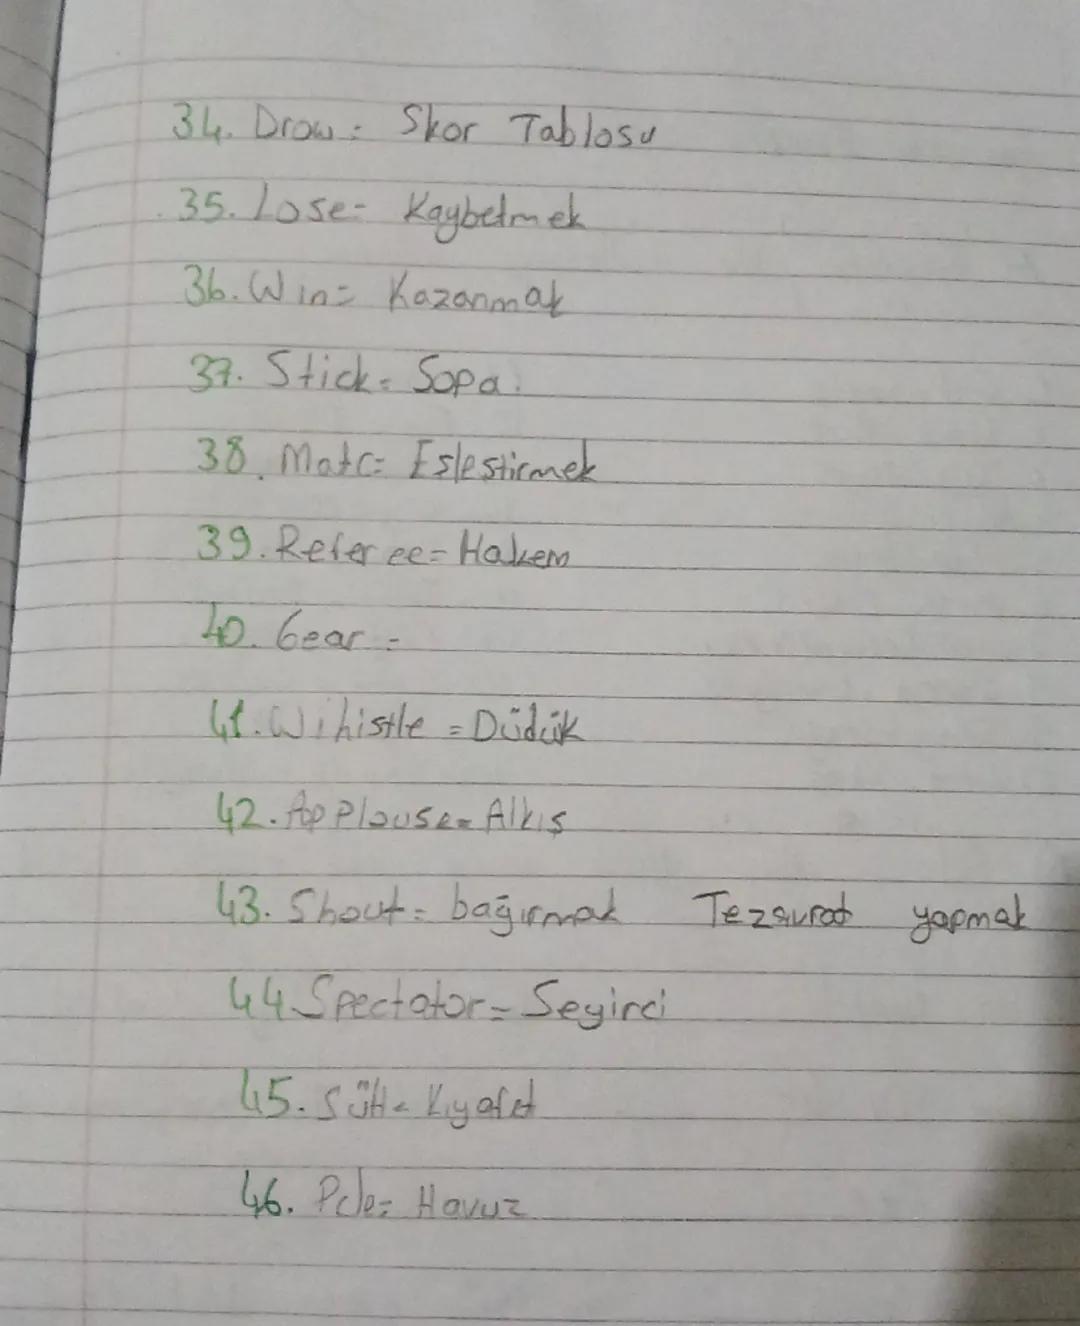 34. Drow = Skor Tablosu
35. Lose = Kaybetmek
36. Win = Kazanmak
37. Stick = Sopa.
38. Matc = Eşleştirmek
39. Referee = Hakem
40. Gear =
41. Wihistle = Düdük
42. Applause = Alkış
43. Shout = bağırmak Tezaurat yapmak
44. Spectator = Seyirci
45. Süit = Kıyafet
46. = Havuz